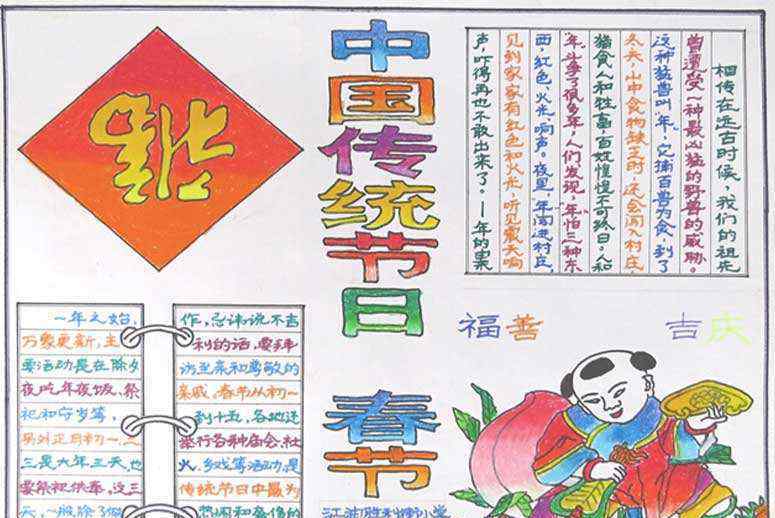 福
中国传统节日 春节
相传在远古时候，我们的祖先
曾遭受一种最凶猛的野兽的威胁。
这种猛兽叫“年”，它捕百兽为食，到了
冬天，山中食物缺乏时，还会闯入村庄，
猎食人和牲畜，百姓惶惶不可终日。人和
“年”斗争了很多年，人们发现，“年”怕三种东
西，红色、火光、响声。夜里，年闯进村庄，
见到家家有红色和火光，听见震天响
声，吓得再也不敢出来了。——年的
福善 吉庆
一年之始，
万象更新，主
要活动是在除夕
夜吃年夜饭、祭
祀和守岁等，
另外正月初一、二
三是大年三天也
要祭祀供奉。这三
天，一般除了做
作，忌讳说不吉
利的话，要拜
访至亲和尊敬的
亲戚。春节从初一
到十五，各地还
举行各种庙会、社
火、乡戏等活动，是
传统节日中最为
胜利街小学